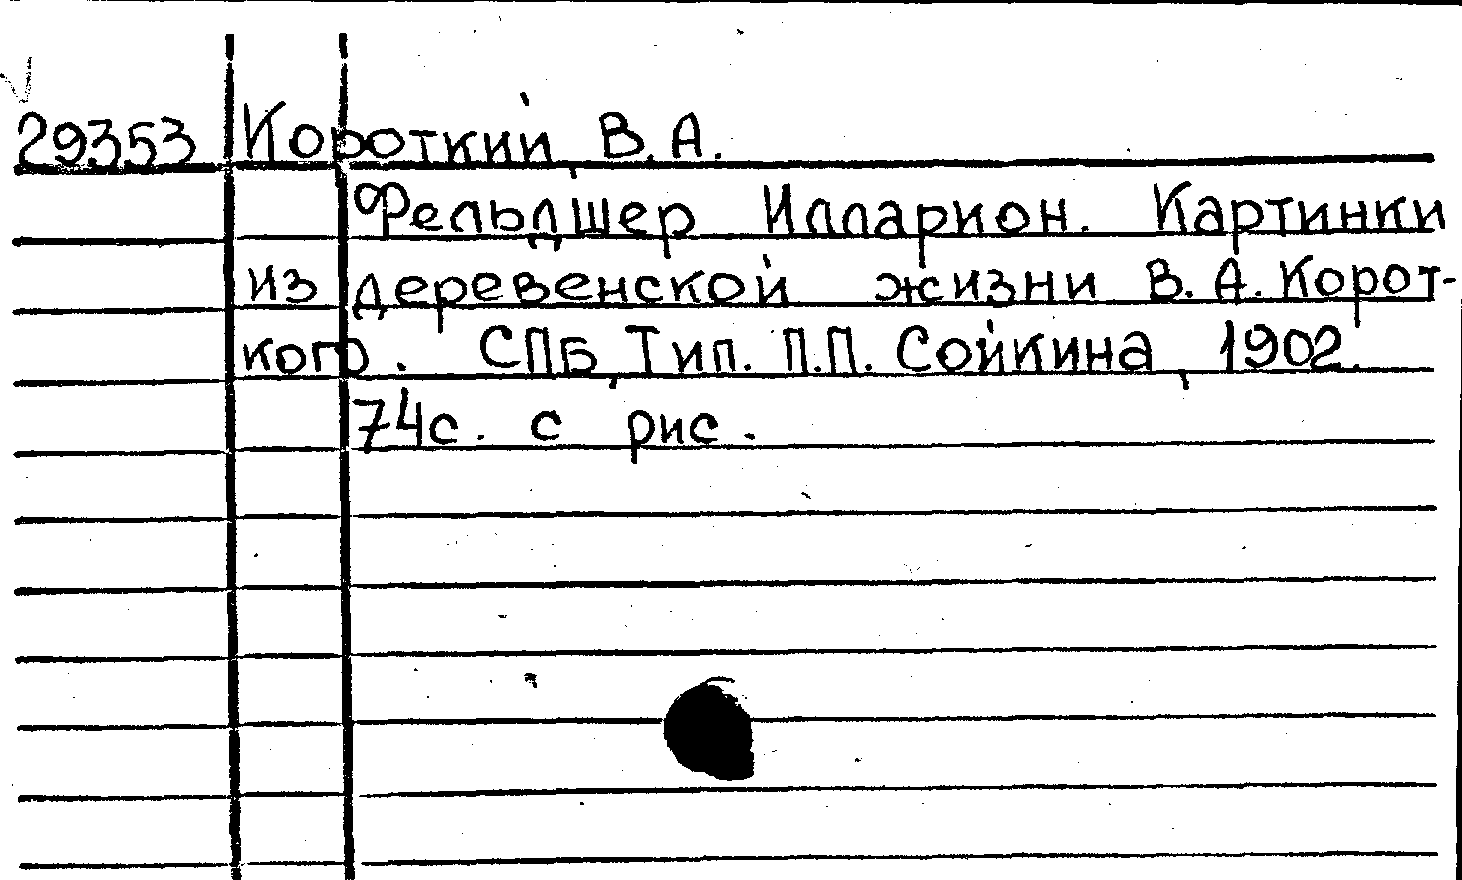 29353 Короткий, В. А.
Фельдшер Илларион. Картинки
из деревенской жизни В. А. Корот-
кого. СПБ, Тип. П.П. Сойкина, 1902.
74с. с рис.